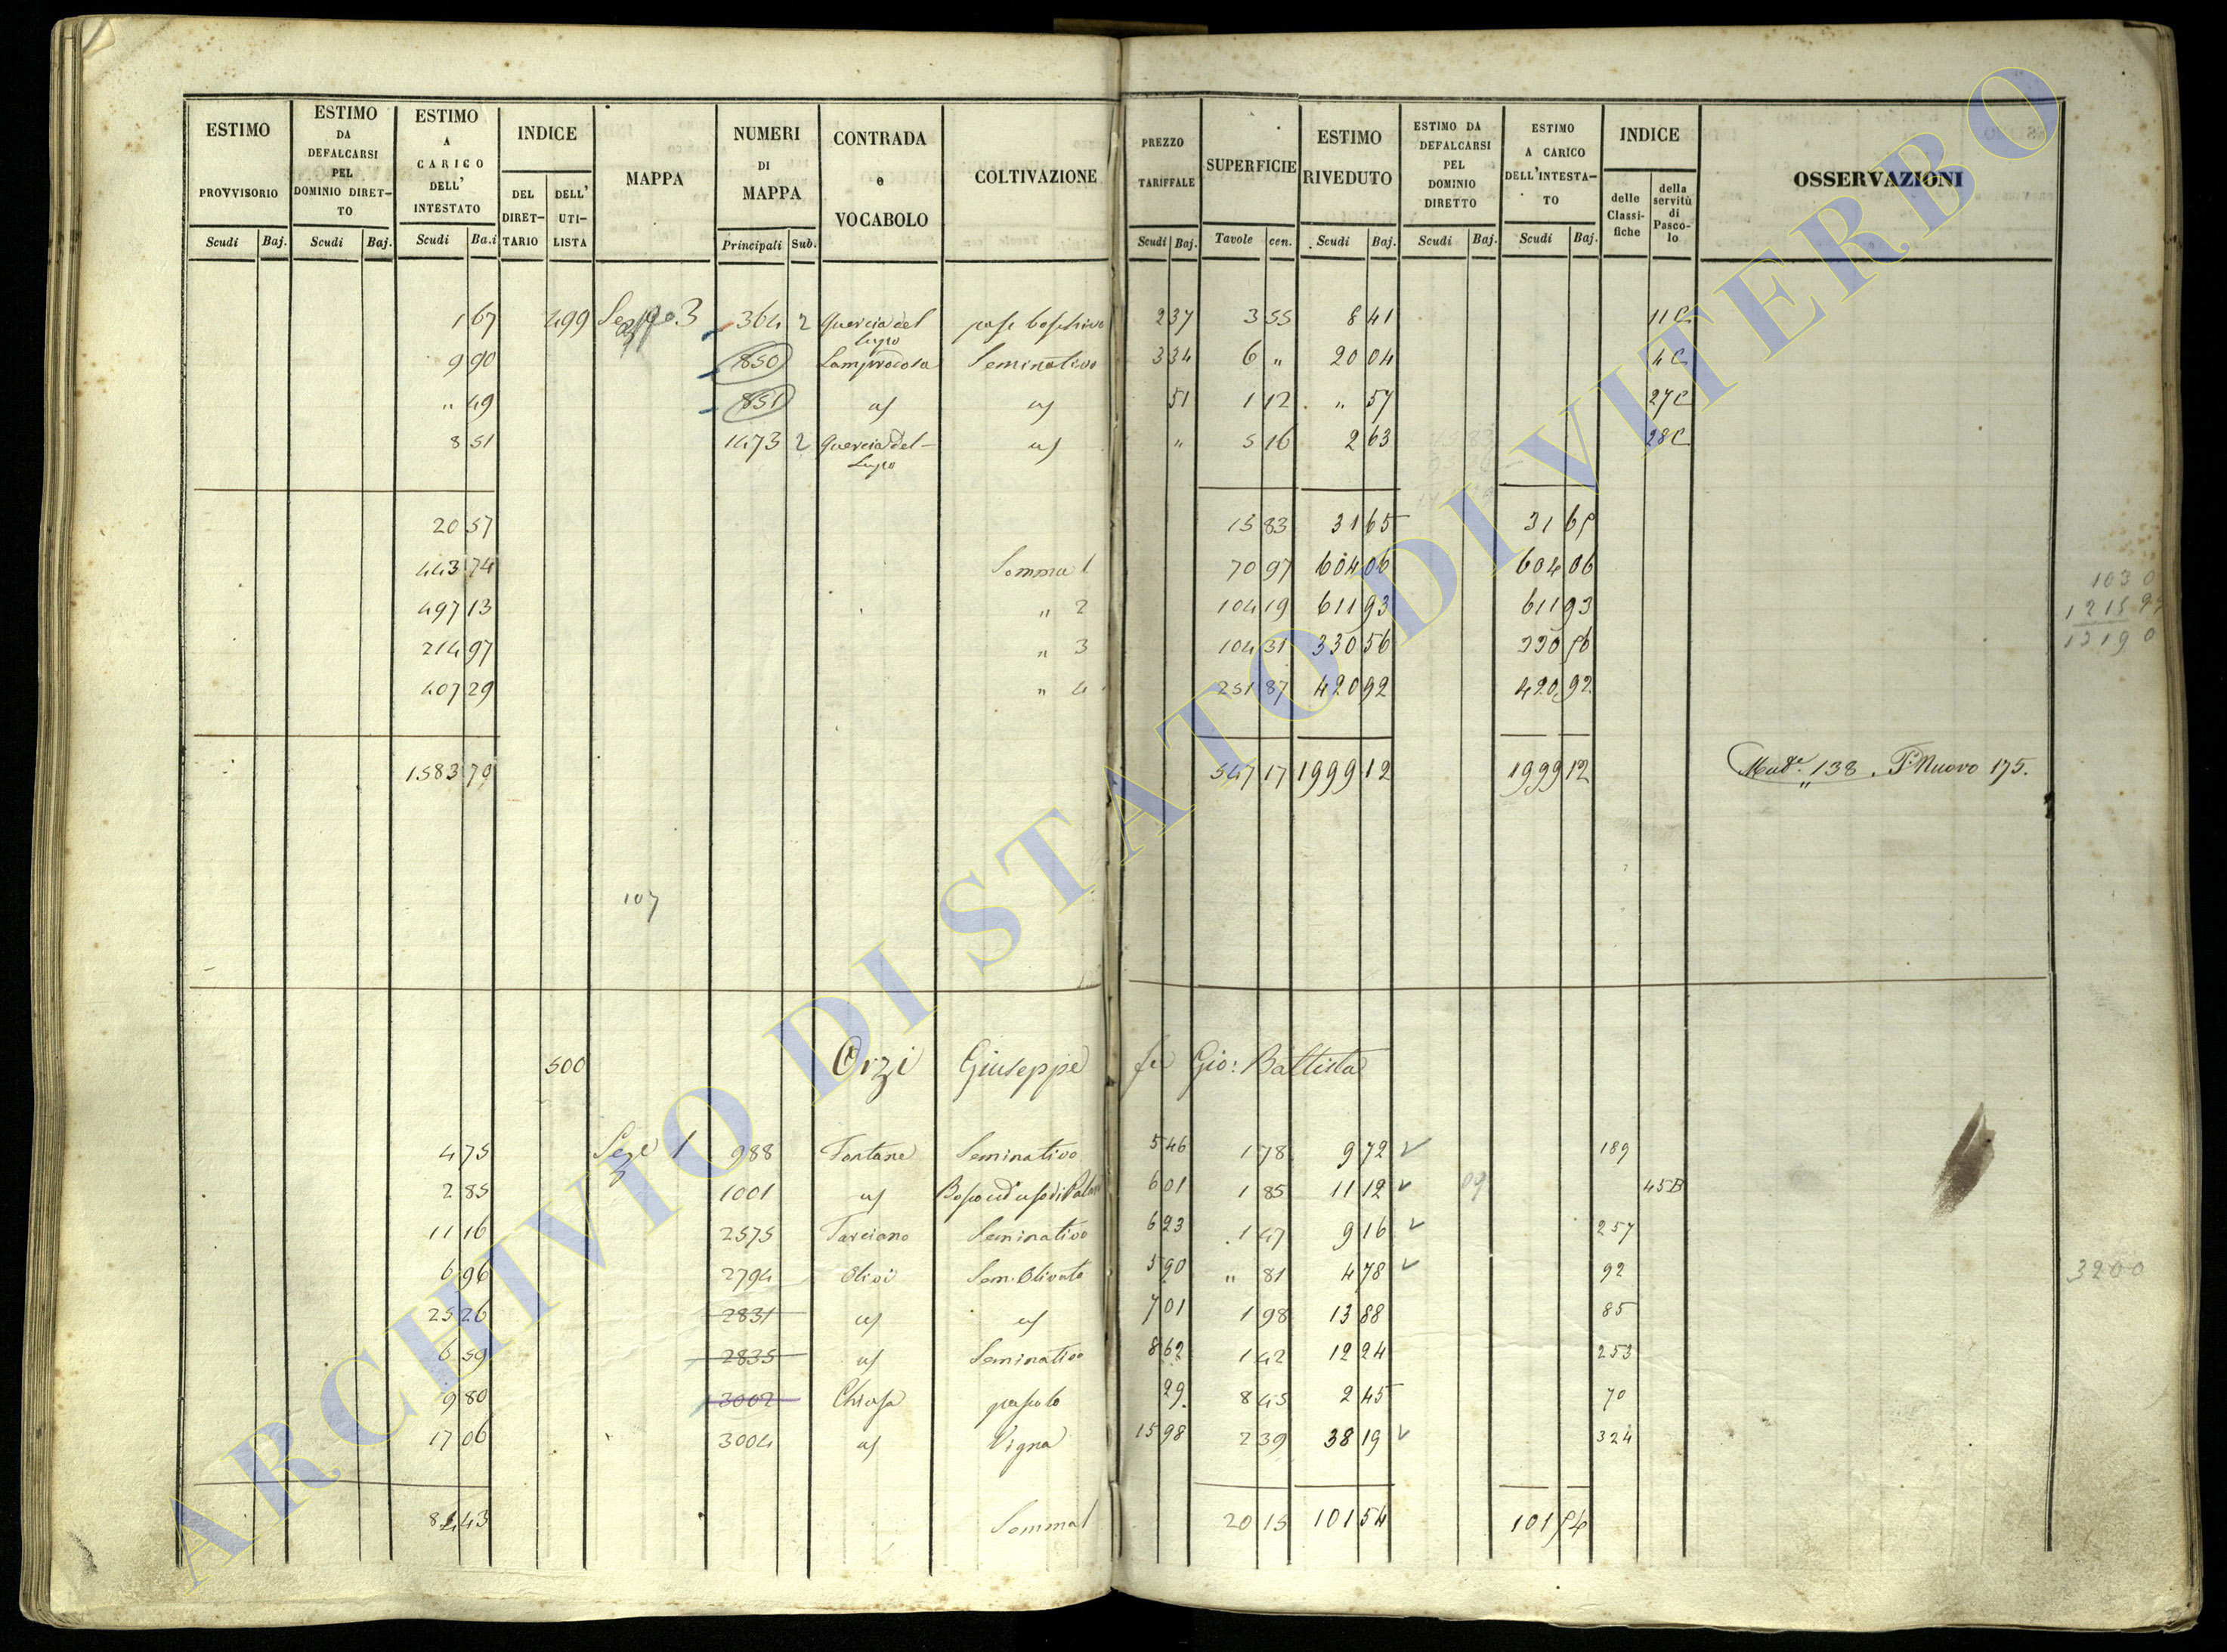 ESTIMO PROVVISORIO Scudi Baj.
ESTIMO DA DEFALCARSI PEL DOMINIO DIRET-TO Scudi Baj.
ESTIMO A CARICO DELL' INTESTATO Scudi Ba.i
INDICE DEL DIRET-TARIO DELL' UTI-LISTA
MAPPA
NUMERI DI MAPPA Principali Sub.
CONTRADA e VOCABOLO
COLTIVAZIONE
PREZZO TARIFFALE Scudi Baj.
SUPERFICIE Tavole cen.
ESTIMO RIVEDUTO Scudi Baj.
ESTIMO DA DEFALCARSI PEL DOMINIO DIRETTO Scudi Baj.
ESTIMO A CARICO DELL'INTESTA-TO Scudi Baj.
INDICE delle Classi-fiche della servitù di Pasco-lo
OSSERVAZIONI
1 67 499 3 364 2 Quercia del Lupo 2 37 3 55 8 41 11C
9 90 850 Seminativo 3 34 6 " 20 04 4C
" 49 851 51 1 12 " 57 27C
8 51 1473 2 Quercia del- Lupo " 5 16 2 63 28C
20 57 15 83 31 65 31 65
443 74 Somma 1 70 97 604 06 604 06
497 13 " 2 104 19 611 93 611 93
214 97 " 3 104 31 330 56 330 56
407 29 " 4 251 87 420 92 420 92
1583 79 547 17 1999 12 1999 12 138. Nuovo 175.
107
500 Orzi Giuseppe fu Gio: Battista
4 75 Sez.e 1 988 Fontane Seminativo 5 46 1 78 9 72 189
2 85 1001 6 01 1 85 11 12 09 45B
11 16 2575 Tarciano Seminativo 6 23 1 47 9 16 257
6 96 2794 Olivi Sem. Olivato 5 90 " 81 4 78 92
25 26 2831 7 01 1 98 13 88 85
6 59 2835 Seminativo 8 62 1 42 12 24 253
9 80 3002 Chiusa pascolo 29 8 45 2 45 70
17 06 3004 Vigna 15 98 2 39 38 19 324
84 43 Somma 1 20 15 101 54 101 54
3200
ARCHIVIO DI STATO DI VITERBO